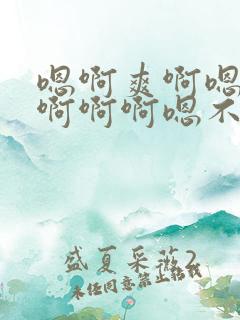 嗯啊爽啊嗯
啊啊啊嗯不
盛夏采薇2
未经同意禁止转载